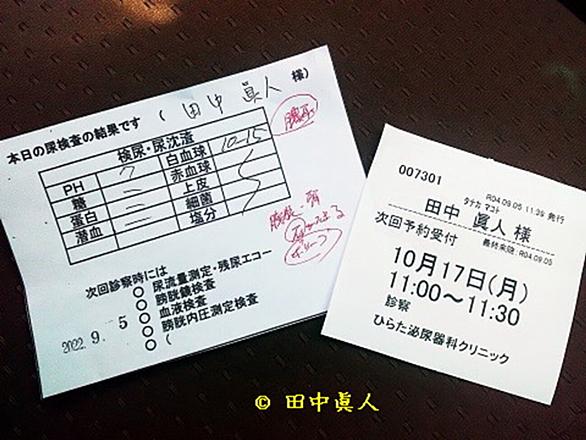 本日の尿検査の結果です ( 田中眞人 様)
検尿・尿沈渣
PH 7 白血球 10-15
糖 ー 赤血球
蛋白 ー 上皮
潜血 ー 細菌
塩分
ポリープ
次回診察時には
○ 尿流量測定・残尿エコー
○ 膀胱鏡検査
○ 血液検査
○ 膀胱内圧測定検査
○ (
2022.9.5
007301
R04.09.05 11:39 発行
タナカ マコト
田中 眞人 様
次回予約受付
最終来院:R04.09.05
10月17日(月)
11:00~11:30
診察
ひらた泌尿器科クリニック
© 田中眞人